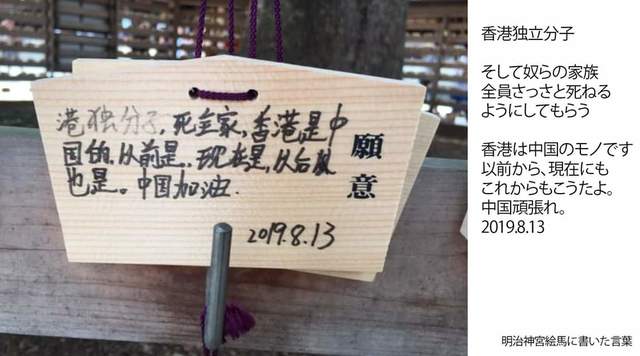 港独分子,死全家,香港是中
国的,以前是,现在是,以后
也是。中国加油.
2019.8.13
願意
香港独立分子
そして奴らの家族
全員さっさと死ねる
ようにしてもらう
香港は中国のモノです
以前から、現在にも
これからもこうたよ。
中国頑張れ。
2019.8.13
明治神宮絵馬に書いた言葉